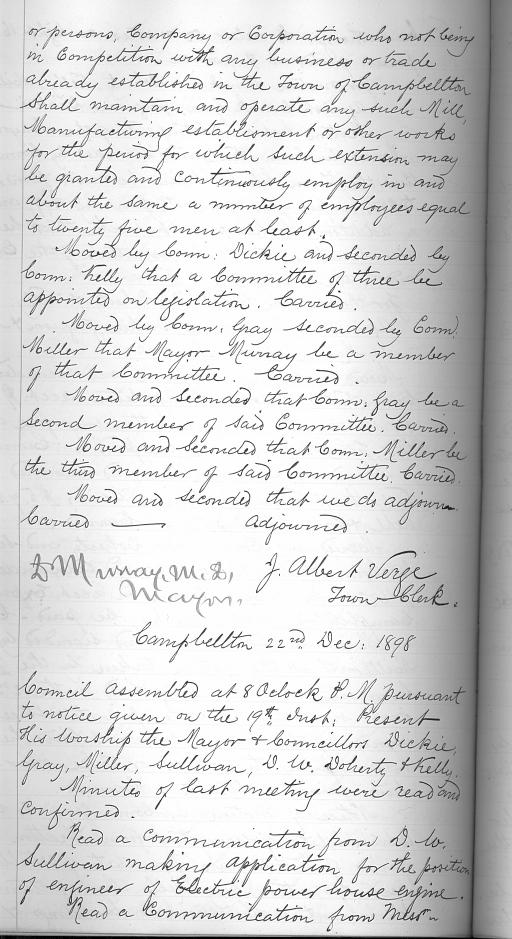 or persons, Company or Corporation who not being
in Competition with any business or trade
already established in the Town of Campbellton
Shall maintain and operate any such Mill,
Manufacturing establisment or other works
for the period for which such extension may
be granted and continuously employ in and
about the same a number of employees equal
to twenty five men at least.
Moved by Coun: Dickie and seconded by
Coun: Kelly that a Committee of three be
appointed on legislation. Carried.
Moved by Coun: Gray seconded by Coun:
Miller that Mayor Murray be a member
of that Committee. Carried.
Moved and seconded that Coun: Gray be a
second member of said Committee. Carried.
Moved and seconded that Coun: Miller be
the third member of said Committee. Carried.
Moved and seconded that we do adjourn
Carried — Adjourned.
D Murray, M.D, J. Albert Verge
Mayor. Town Clerk.
Campbellton 22nd Dec: 1898
Council assembled at 8 Oclock P.M. pursuant
to notice given on the 19th Inst: Present
His Worship the Mayor & Councillors Dickie,
Gray, Miller, Sullivan, D. W. Doherty & Kelly.
Minutes of last meeting were read and
confirmed.
Read a communication from D. W.
Sullivan making application for the position
of engineer of Electric power house engine.
Read a Communication from Messrs